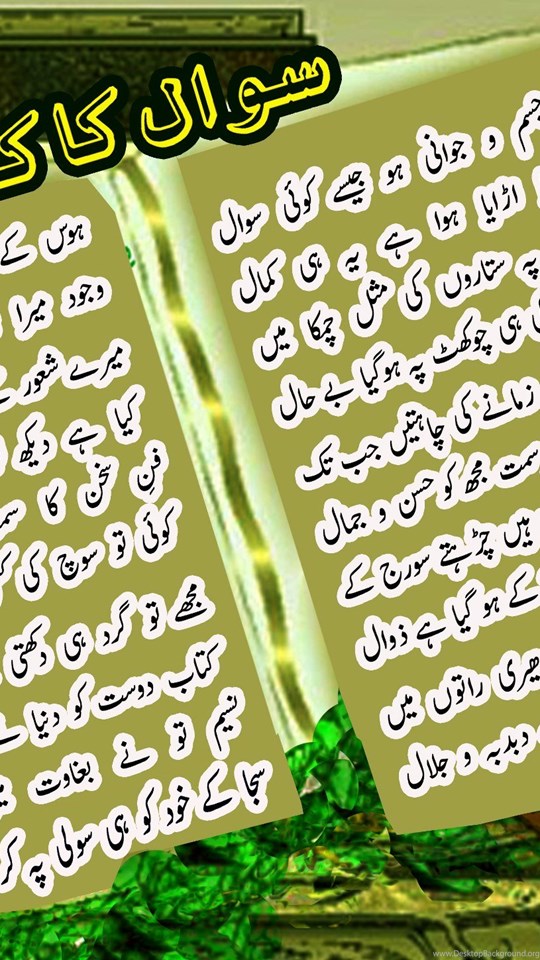 سوال کا
جسم و جوانی ہو جیسے کوئی سوال
اڑایا ہوا ہے یہ ہی کمال
پہ ستاروں کی مثل چمکا میں
ہی چوکھٹ پہ ہوگیا بے حال
زمانے کی چاہتیں جب تک
سمت مجھ کو حسن و جمال
ہیں چڑہتے سورج کے
کے ہو گیا ہے ذوال
راتوں میں
دبدبہ و جلال
ہوس کے
وجود میرا
میرے شعور
کیا ہے دیکھ
فنِ سخن کا
کوئی تو سوچ کی
مجھے تو گرد ہی دکھتی
کتاب دوست کو دنیا
نسیم تو نے بغاوت
سجا کے خود کو ہی سولی پہ
www.DesktopBackground.org